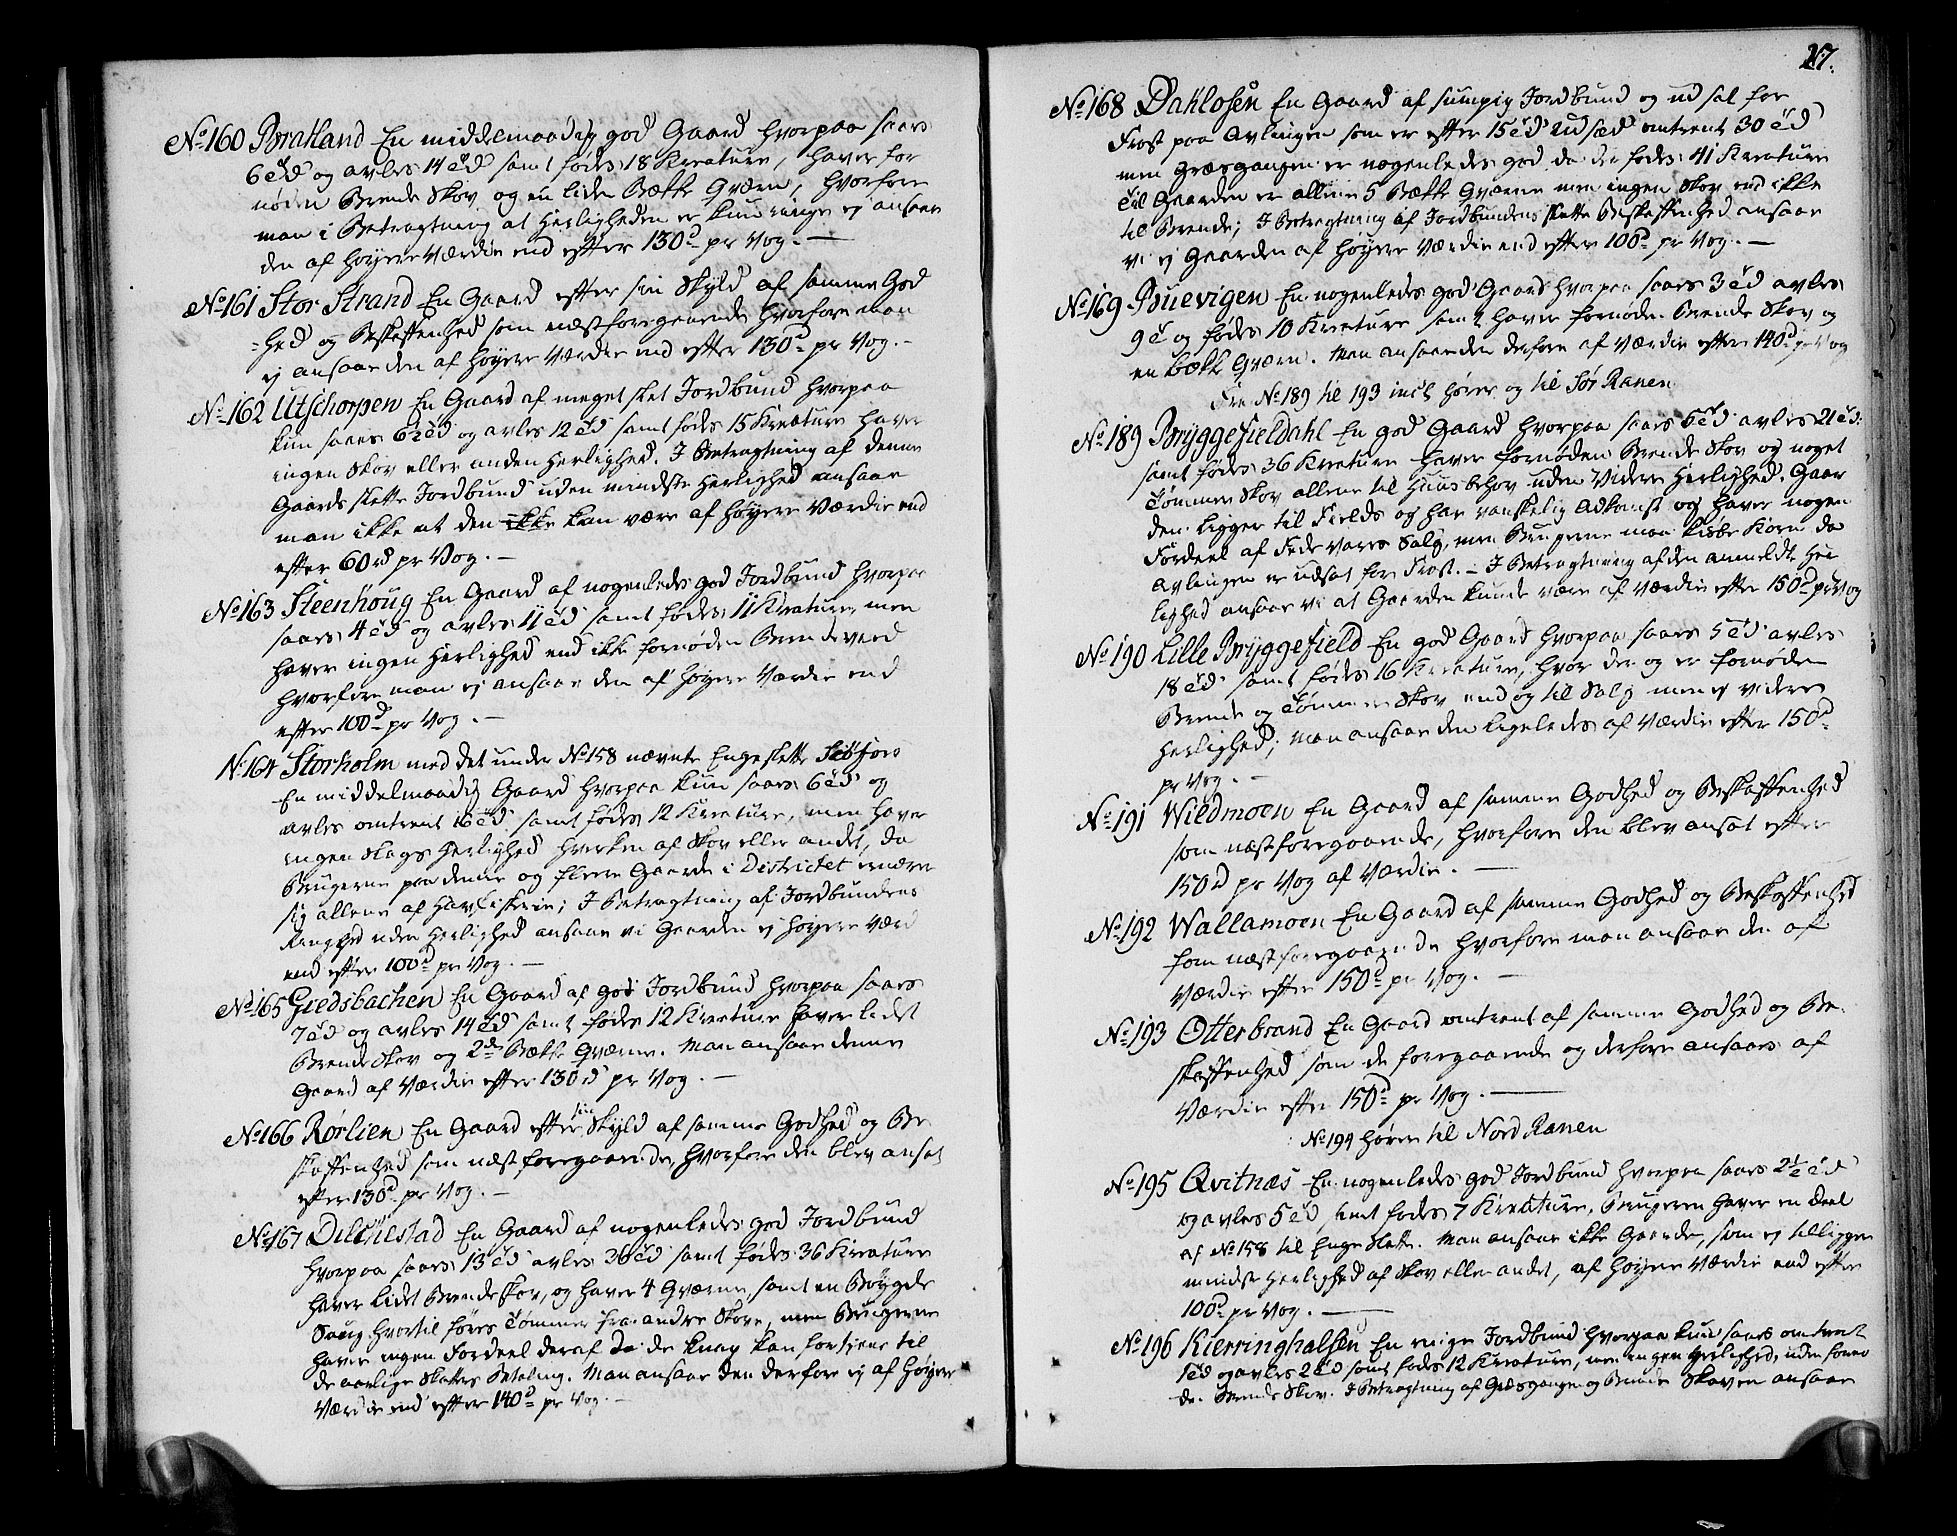 No 160 Bratland En middelmaadig god Gaard hvorpaa saaes
6 Td og avles 14 Td samt födes 18 Kreature, haver for
nöden Brende Skov og en liden Bekke Qværn, hvorfore
man i Betragtning at Herligheden er kun ringe ej ansaae
den af höyere Værdie end efter 130 d pr Vog. —
No 161 Stor Strand En Gaard efter sin Skyld af samme God
=hed og Beskaffenhed som næstforegaaende hvorfore man
ej ansaae den af höyere Værdie end efter 130 d pr Vog. -
No 162 Utschorpen En Gaard af meget slet Jordbund hvorpaa
kun saaes 6½ Td og avles 12 Td samt födes 15 Kreature haver
ingen Skov eller anden Herlighed. I Betragtning af denne
Gaards slette Jordbund uden mindste Herlighed ansaae
man ikke at den ikke kan være af höyere Værdie end
efter 60 rd pr Vog. —
No 163 Steenhoug En Gaard af nogenledes god Jordbund hvorpaa
saaes 4 Td og avles 11 Td samt födes 11 Kreature, men
haver ingen Herlighed end ikke fornöden Brendeveed
hvorfore man ej ansaae den af höyere Værdie end
efter 100 d pr Vog. —
No 164 Storholm med det under No 158 nævnte Engeslette
En middelmaadig Gaard hvorpaa kun saaes 6 Td og
avles omtrent 16 Td samt födes 12 Kreature, men haver
ingen Slags Herlighed hverken af Skov eller andet, da
Brugerne paa denne og flere Gaarde i Districtet ernære
sig allene af Havfiskerie; I Betragtning af Jordbundens
Ringhed uden Herlighed ansaae vi Gaarden ej höyere værd
end efter 100 d pr Vog. —
No 165 Giedsbachen En Gaard af god Jordbund hvorpaa saaes
7 Td og avles 14 Td samt födes 12 Kreature haver lidet
Brende Skov og 2de Bekke Qværne. Man ansaae denne
Gaard af Værdie efter 130 rd pr Vog. —
No 166 Rörlien En Gaard efter sin Skyld af samme Godhed og Be
skaffenhed som næst foregaaende, hvorfore den blev ansat
efter 130 d pr Vog. —
No 167 Dilchestad En Gaard af nogenledes god Jordbund
hvorpaa saaes 13 Td avles 36 Td samt födes 36 Kreature
haver lidet Brende Skov, og haver 4 Qværne, samt en Böygde
Saug hvortil föres Tömmer fra andre Skove, men Brugerne
haver ingen Fordeel deraf da de knap kan fortiene til
de aarlige Skatters Betaling. Man ansaae den derfore ej af höyere
Værdie end efter 140 d pr Vog. —
17.
No 168 Dahlosen En Gaard af sumpig Jordbund og udsat for
Frost paa Avlingen som er efter 15 Td Udsæd omtrent 30 Td
men græsgangen er nogenledes god da der födes 41 Kreature
Til Gaarden er allene 5 Bekke Qværne men ingen Skov end ikke
til Brende; I Betragtning af Jordbundens slette Beskaffenhed ansaae
vi ej Gaarden af höyere Værdie end efter 100 d pr Vog. —
No 169 Buevigen En nogenledes god Gaard hvorpaa saaes 3 Td avles
9 T og födes 10 Kreature samt haver fornöden Brende Skov og
en bekk Qværn. Man ansaae den derfore af Værdie efter 140 d pr Vog
Fra No 189 til 193 incl hörer og til Sör Ranen
No 189 Bryggefieldahl En god Gaard hvorpaa saaes 6 Td avles 21 Td:
samt födes 36 Kreature haver fornöden Brende Skov og noget
Tömmer Skov allene til Huusbehov uden videre Herlighed. Gaar
den ligger til Fields og har vanskelig Adkomst og haver nogen
Fordeel af Fede Vares Salg, men Brugerne maa kiöbe Korn da
Avlingen er udsat for Frost. — I Betragtning af den anmeldte Her
lighed ansaae vi at Gaarden kunde være af Værdie efter 150 d pr Vog
No 190 Lille Bryggefield En god Gaard hvorpaa saaes 5 Td avles
18 Td samt födes 16 Kreature, hvor der og er fornöden
Brende og Tömmer Skov end og til Salg men ej videre
Herlighed; man ansaae den ligeledes af Værdie efter 150 d
pr Vog. —
No 191 Wildmoen En Gaard af samme Godhed og Beskaffenhed
som næstforegaaende, hvorfore den blev ansat efter
150 d pr Vog af Værdie. —
No 192 Wallamoen En Gaard af samme Godhed og Beskaffenhed
som næstforegaaende hvorfore man ansaae den af
Værdie efter 150 d pr Vog. —
No 193 Otterbrand En Gaard omtrent af samme Godhed og Be-
skaffenhed som de foregaaende og derfore ansaaes af
Værdie efter 150 d pr Vog. —
No 194 hörer til Nord Ranen
No 195 Qvitnæs En nogenledes god Jordbund hvorpaa saaes 2½ Td
og avles 5 Td samt födes 7 Kreature, Brugeren haver en Deel
af No 158 til Enge Slette. Man ansaae ikke Gaarden, som ej tilligger
mindste Herlighed af Skov eller andet, af höyere Værdie end efter
100 d pr Vog. —
No 196 Kierringhalsen En ringe Jordbund hvorpaa kun saaes omtrent
1 Td og avles 2 Td samt födes 12 Kreature, men ingen Herlighed, uden fornö
de. Brende Skov. I Betragtning af Græsgangen og Brende Skoven ansaae